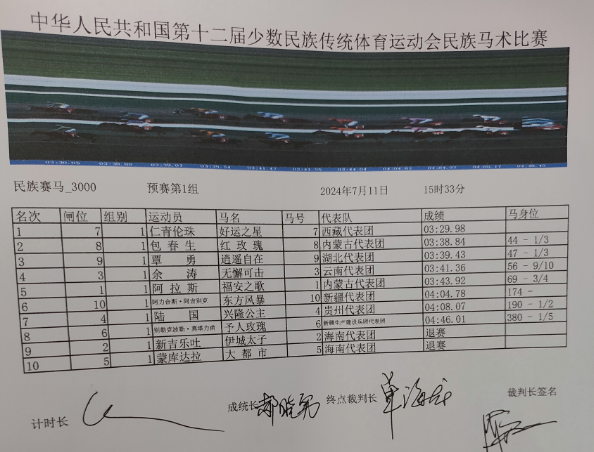 中华人民共和国第十二届少数民族传统体育运动会民族马术比赛
民族赛马_3000 预赛第1组 2024年7月11日 15时33分
名次 闸位 组别 运动员 马名 马号 代表队 成绩 马身位
1 7 1 仁青伦珠 好运之星 7 西藏代表团 03:29.98
2 8 1 包春生 红玫瑰 8 内蒙古代表团 03:38.84 44 - 1/3
3 9 1 覃勇 逍遥自在 9 湖北代表团 03:39.43 47 - 1/3
4 3 1 余涛 无懈可击 3 云南代表团 03:41.36 56 - 9/10
5 1 1 阿拉斯 福安之歌 1 内蒙古代表团 03:43.92 69 - 3/4
6 10 1 东方风暴 10 新疆代表团 04:04.78 174 -
7 4 1 陆国 兴隆公主 4 贵州代表团 04:08.07 190 - 1/2
8 6 1 予人玫瑰 6 新疆生产建设兵团代表团 04:46.01 380 - 1/5
9 2 1 新吉乐吐 伊城太子 2 海南代表团 退赛
10 5 1 蒙库达拉 大都市 5 海南代表团 退赛
计时长 成统长 终点裁判长 裁判长签名